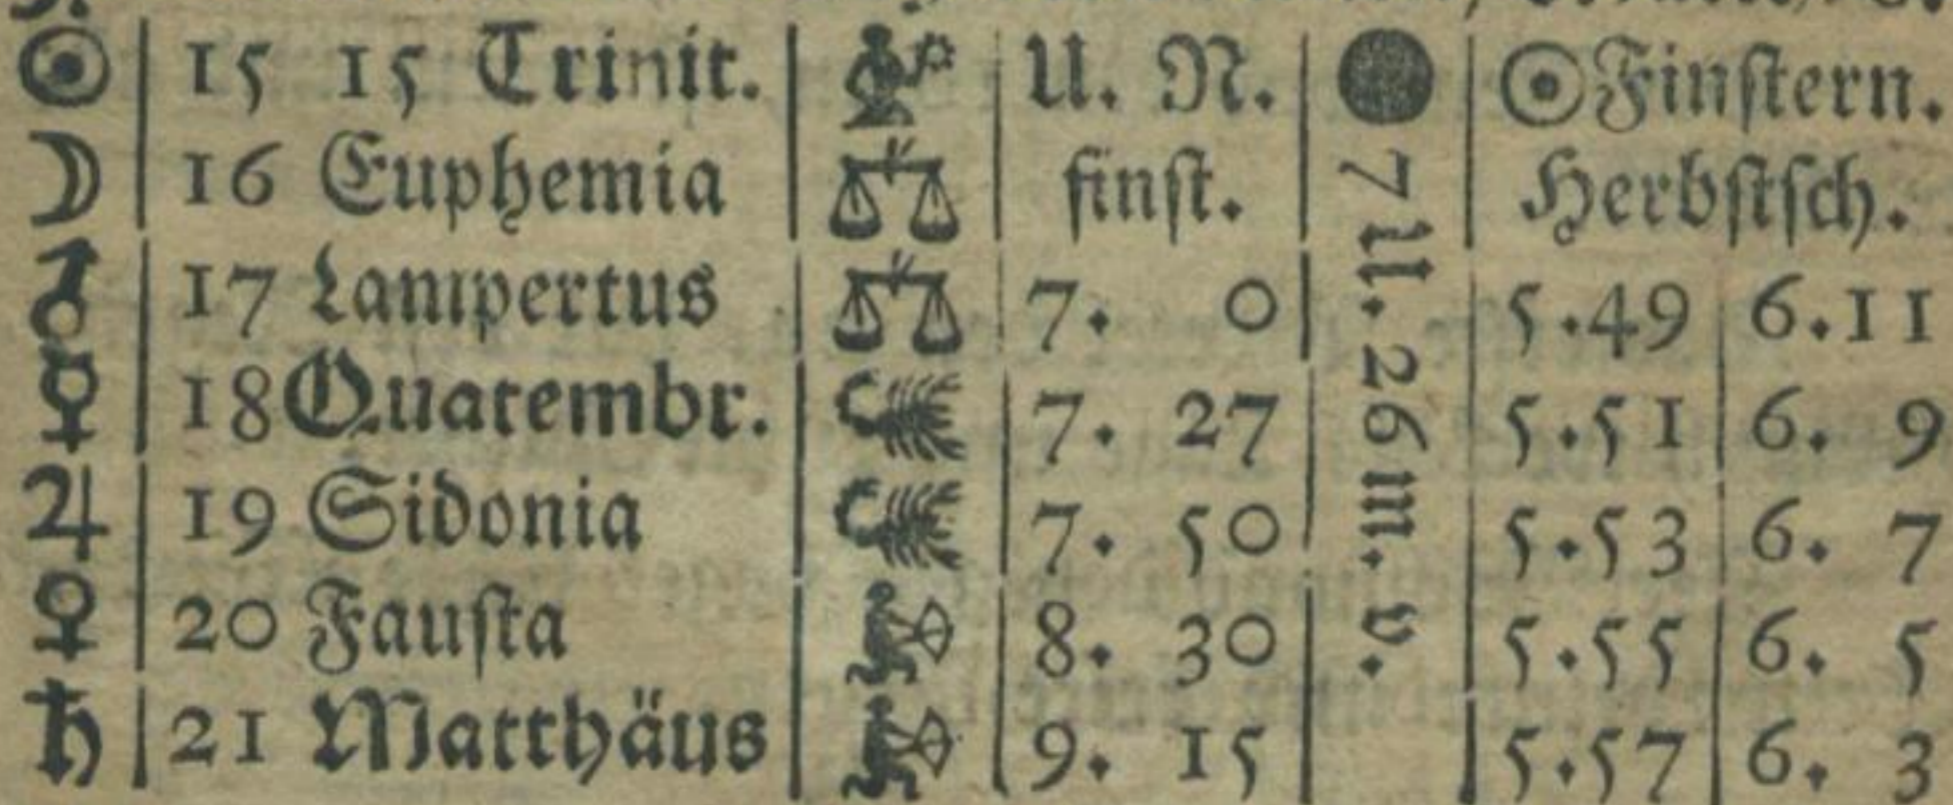 ☉ 15 15 Trinit. U. N. ☉Finſtern.
☽ 16 Euphemia finſt. Herbſtſch.
♂ 17 Lampertus 7. 0 5.49 6.11
☿ 18 Quatembr. 7. 27 5.51 6. 9
♃ 19 Sidonia 7. 50 5.53 6. 7
♀ 20 Fauſta 8. 30 5.55 6. 5
♄ 21 Matthäus 9. 15 5.57 6. 3
7 U. 26 m. v.